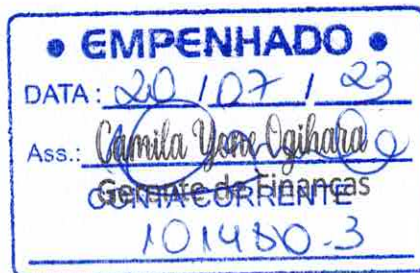 • EMPENHADO •
DATA: 20 / 07 / 23
Ass.: Camila Yone Ogihara
Gerente de Finanças
CONTA CORRENTE
101480-3